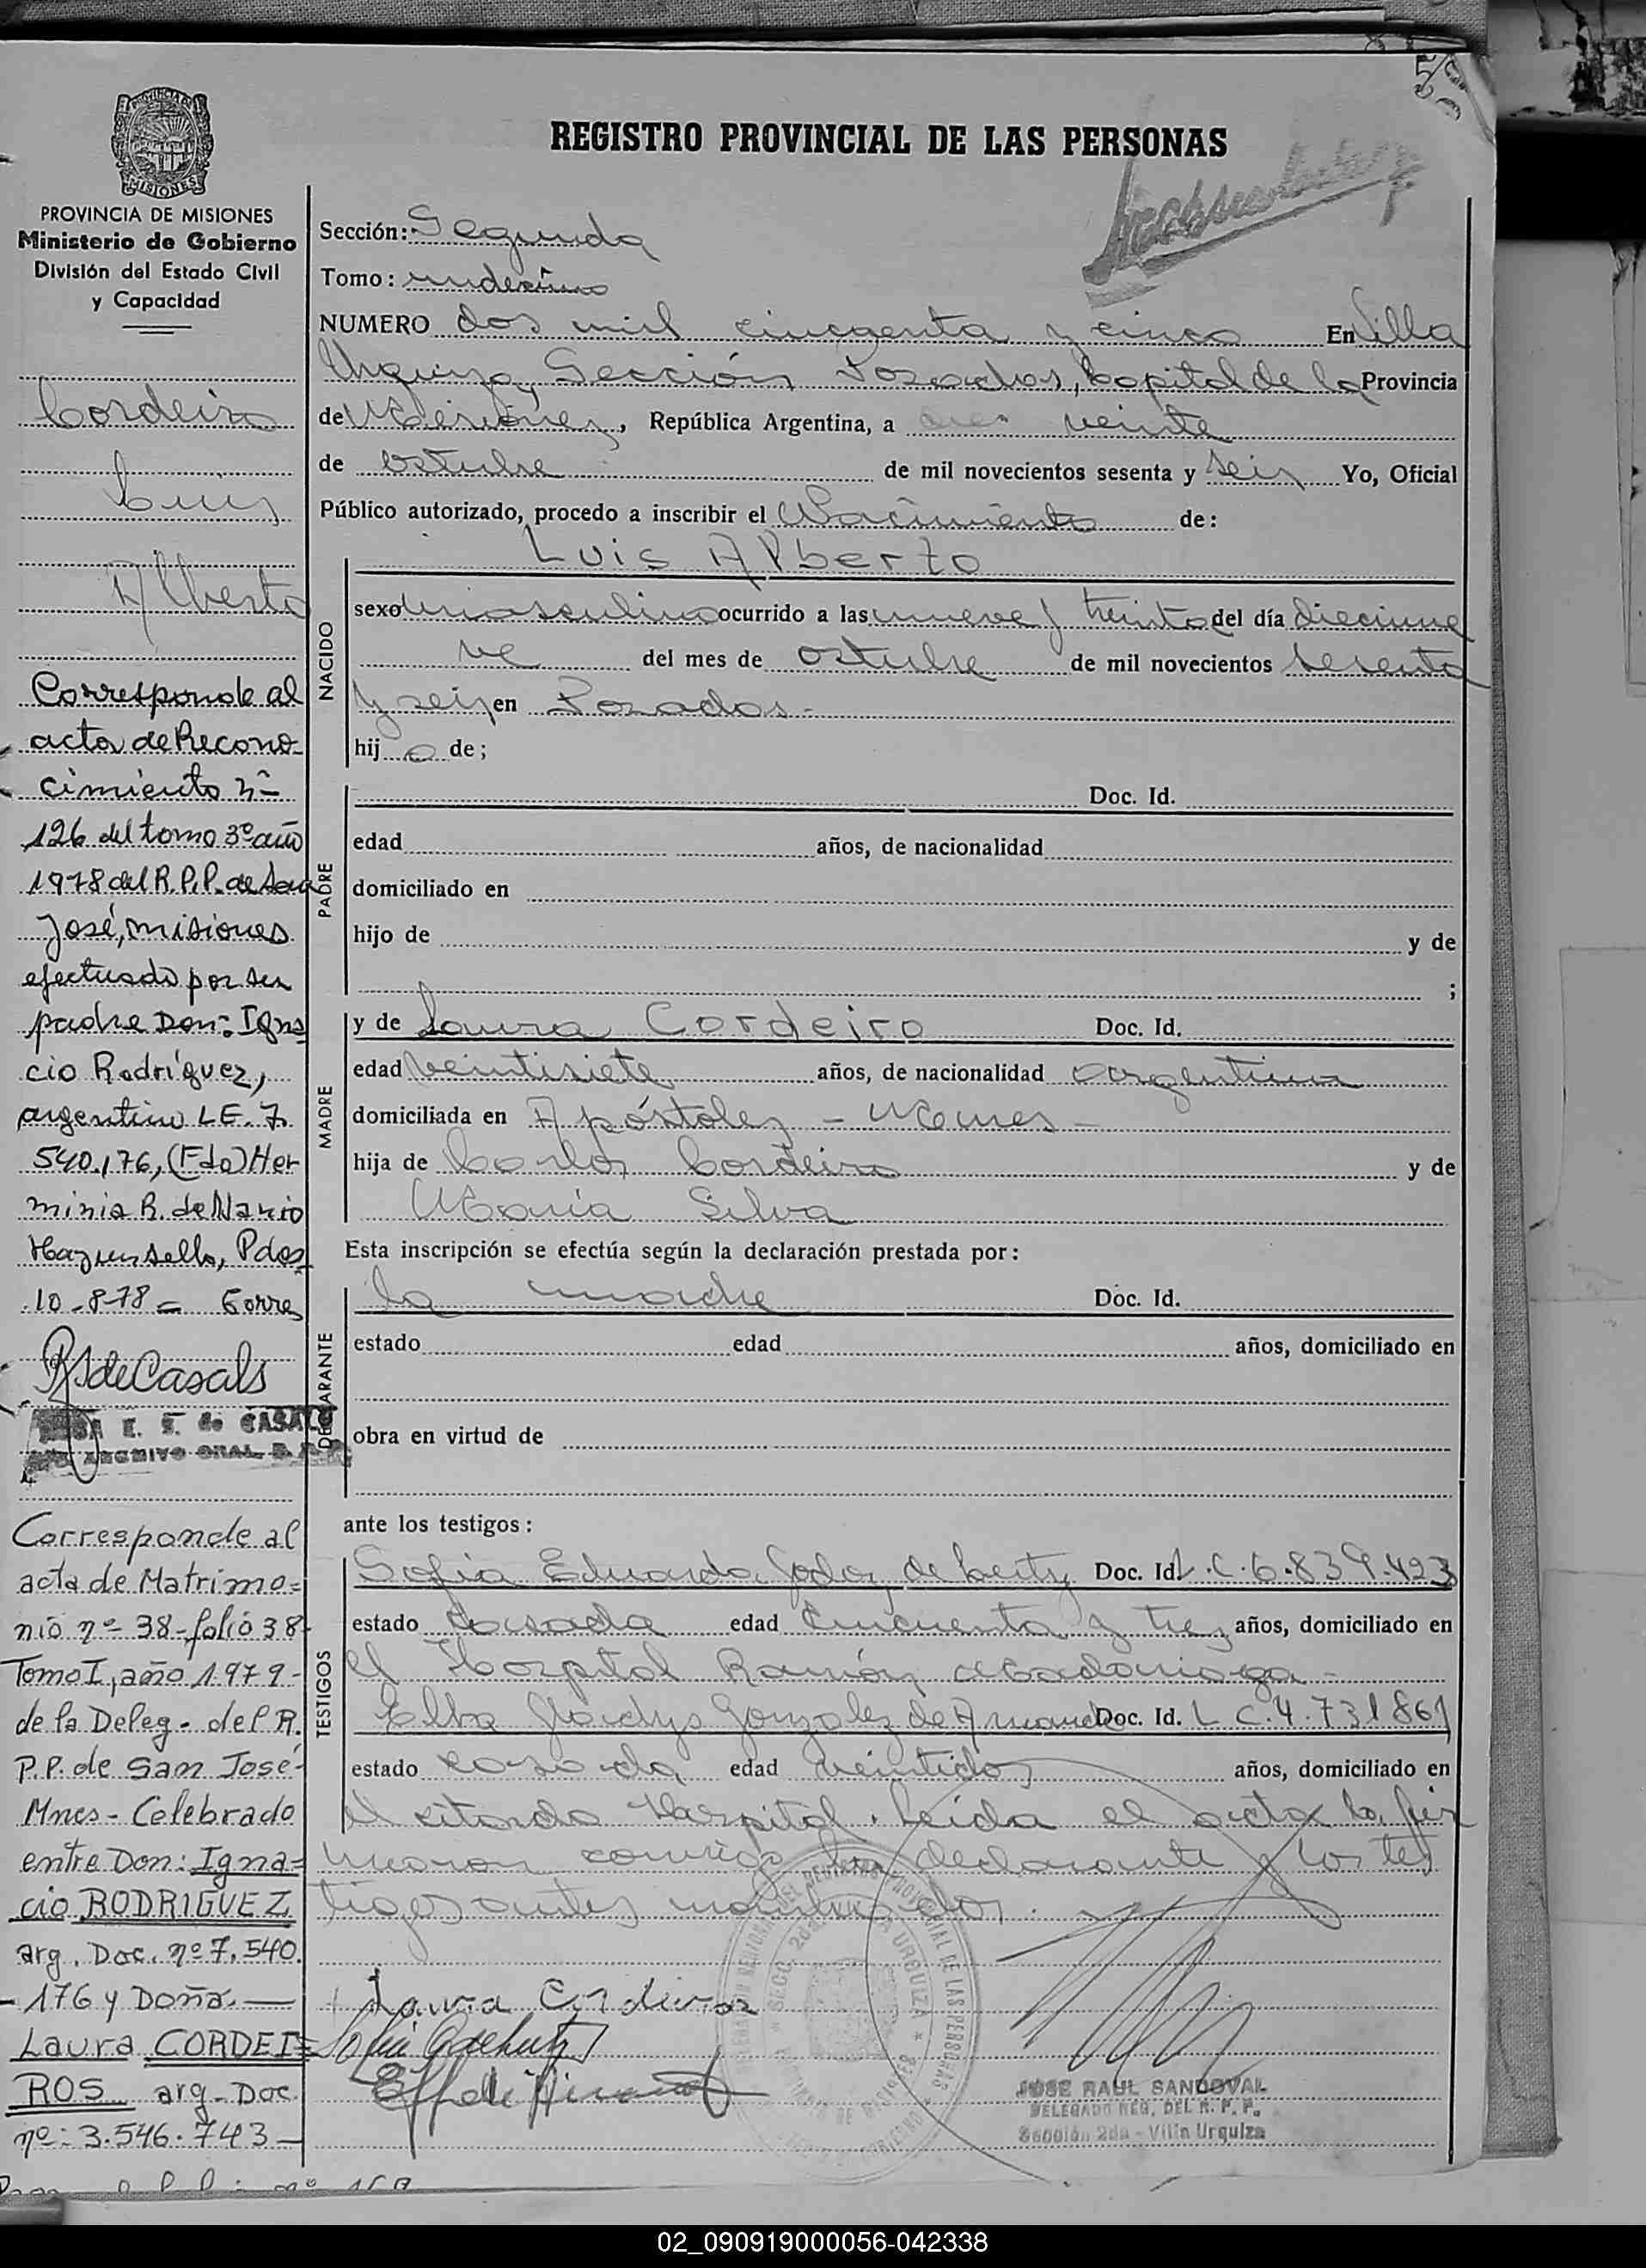 REGISTRO PROVINCIAL DE LAS PERSONAS
PROVINCIA DE MISIONES
Ministerio de Gobierno
División del Estado Civil
y Capacidad
Cordeiro
Luis
Alberto
Corresponde al
acta de Recono-
cimiento nº
126 del tomo 3º año
1978 del R.P.P. de San
José, misiones
efectuado por su
padre Don: Igna
cio Rodríguez,
argentino L.E. 7.
540.176, (Fdo) Her
minia R. de Nario
Hay un sello, Pdas
10-8-78 = Torres
RS de Casals
E. S. de CASALS
ARCHIVO GRAL. R. P. P.
Corresponde al
acta de Matrimo=
nio nº 38-folio 38-
Tomo I, año 1979-
de la Deleg. del R.
P.P. de San José-
Mnes- Celebrado
entre Don: Igna=
cio RODRIGUEZ
arg. Doc. nº 7.540.
-176 y Doña.—
Laura CORDEI=
ROS arg-Doc.
nº: 3.546.743—
Sección: Segunda
Tomo: undécimo
NUMERO dos mil cincuenta y cinco En Villa
Urquiza, Sección Posadas, Capital de la Provincia
de Misiones, República Argentina, a veinte
de octubre de mil novecientos sesenta y seis Yo, Oficial
Público autorizado, procedo a inscribir el Nacimiento de:
Luis Alberto
NACIDO
sexo masculino ocurrido a las nueve y treinta del día diecinue
ve del mes de octubre de mil novecientos sesenta
y seis en Posadas.-
hij o de;
PADRE
Doc. Id.
edad años, de nacionalidad
domiciliado en
hijo de y de
;
MADRE
y de Laura Cordeiro Doc. Id.
edad veintisiete años, de nacionalidad argentina
domiciliada en Apóstoles - Mnes -
hija de Carlos Cordeiro y de
María Silva
Esta inscripción se efectúa según la declaración prestada por:
DECLARANTE
la madre Doc. Id.
estado edad años, domiciliado en
obra en virtud de
ante los testigos:
TESTIGOS
Sofia Eduarda Godoy de Doc. Id. L.C. 6.839.423
estado casada edad cincuenta y tres años, domiciliado en
el Hospital Ramón Madariaga -
Elba Gladys Gonzalez de Doc. Id. L C. 4.731861
estado casada edad veintidos años, domiciliado en
el citado Hospital. Leida el acta la fir
maron conmigo la declarante y los tes
tigos antes nombrados.
Laura Cordeiro
JOSE RAUL SANDOVAL
DELEGADO REG. DEL R. P. P.
Sección 2da - Villa Urquiza
02_090919000056-042338